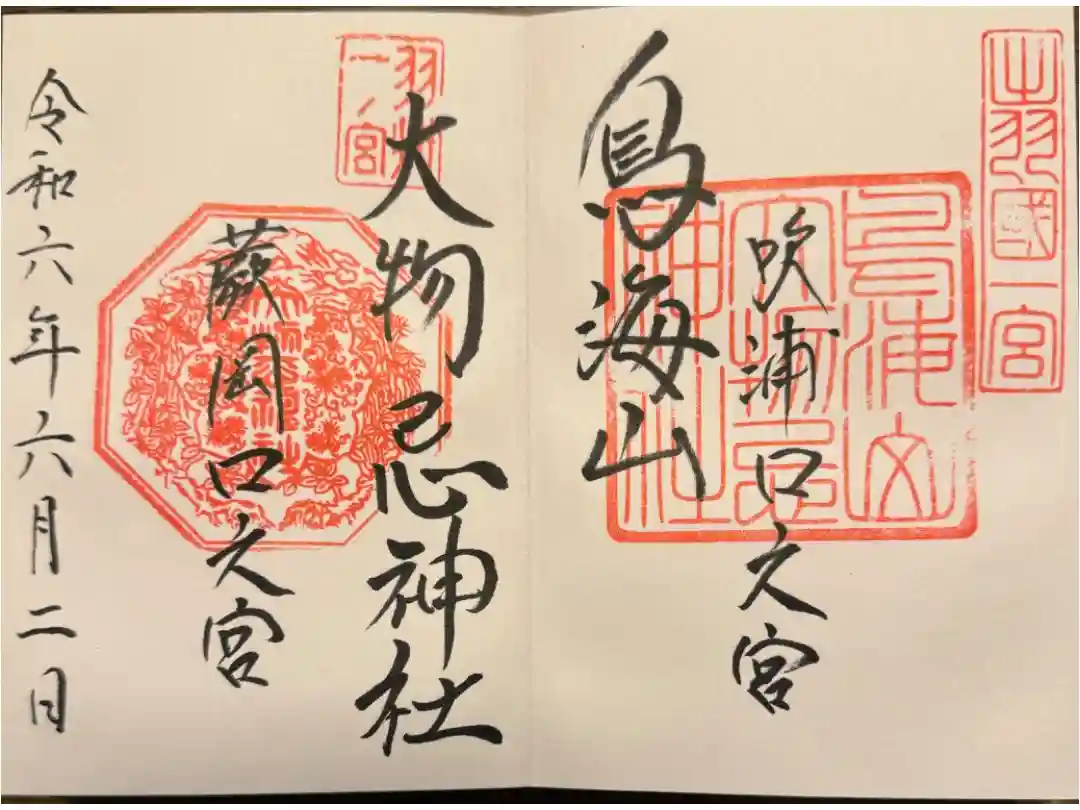 出羽國一宮
鳥海山
大物忌
神社
吹浦口之宮
鳥海山
羽州
一ノ宮
大物忌神社
蕨岡口之宮
令和六年六月二日